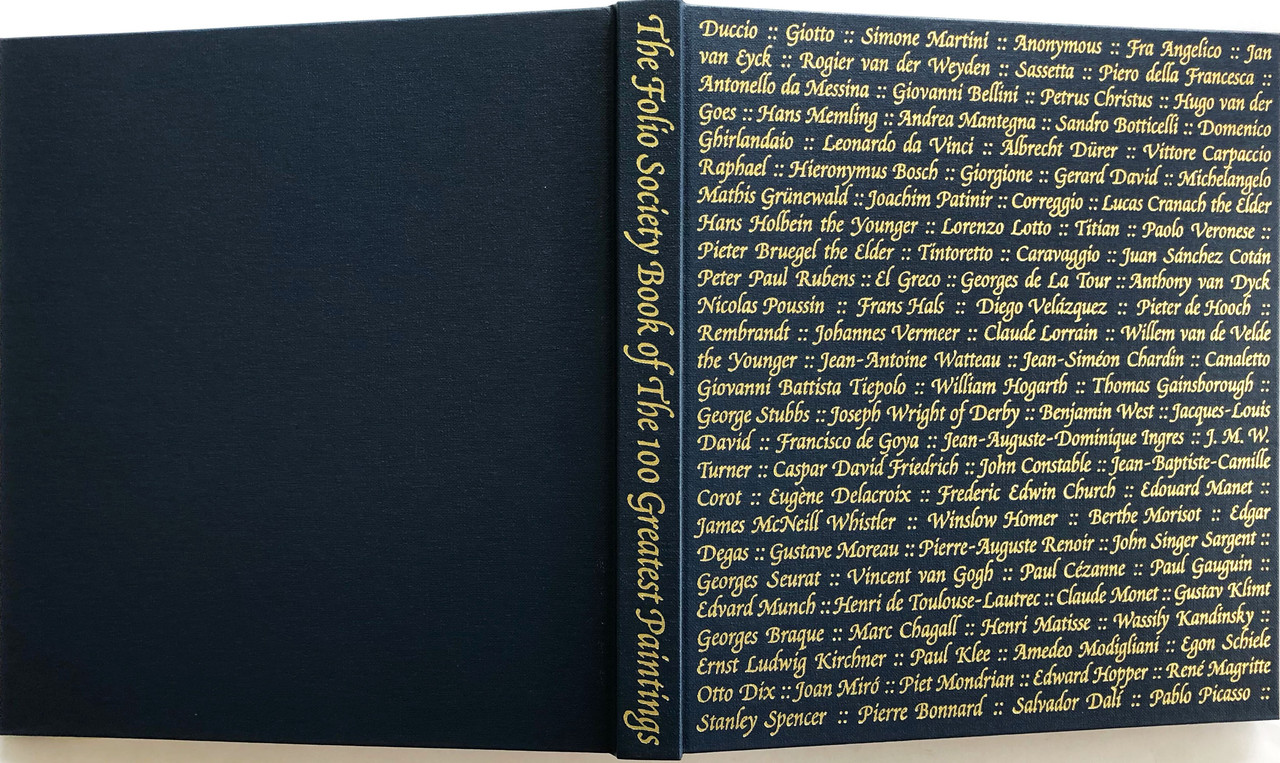 The Folio Society Book of The 100 Greatest Paintings
Duccio :: Giotto :: Simone Martini :: Anonymous :: Fra Angelico :: Jan
van Eyck :: Rogier van der Weyden :: Sassetta :: Piero della Francesca ::
Antonello da Messina :: Giovanni Bellini :: Petrus Christus :: Hugo van der
Goes :: Hans Memling :: Andrea Mantegna :: Sandro Botticelli :: Domenico
Ghirlandaio :: Leonardo da Vinci :: Albrecht Dürer :: Vittore Carpaccio
Raphael :: Hieronymus Bosch :: Giorgione :: Gerard David :: Michelangelo
Mathis Grünewald :: Joachim Patinir :: Correggio :: Lucas Cranach the Elder
Hans Holbein the Younger :: Lorenzo Lotto :: Titian :: Paolo Veronese ::
Pieter Bruegel the Elder :: Tintoretto :: Caravaggio :: Juan Sánchez Cotán
Peter Paul Rubens :: El Greco :: Georges de La Tour :: Anthony van Dyck
Nicolas Poussin :: Frans Hals :: Diego Velázquez :: Pieter de Hooch ::
Rembrandt :: Johannes Vermeer :: Claude Lorrain :: Willem van de Velde
the Younger :: Jean-Antoine Watteau :: Jean-Siméon Chardin :: Canaletto
Giovanni Battista Tiepolo :: William Hogarth :: Thomas Gainsborough ::
George Stubbs :: Joseph Wright of Derby :: Benjamin West :: Jacques-Louis
David :: Francisco de Goya :: Jean-Auguste-Dominique Ingres :: J. M. W.
Turner :: Caspar David Friedrich :: John Constable :: Jean-Baptiste-Camille
Corot :: Eugène Delacroix :: Frederic Edwin Church :: Edouard Manet ::
James McNeill Whistler :: Winslow Homer :: Berthe Morisot :: Edgar
Degas :: Gustave Moreau :: Pierre-Auguste Renoir :: John Singer Sargent ::
Georges Seurat :: Vincent van Gogh :: Paul Cézanne :: Paul Gauguin ::
Edvard Munch :: Henri de Toulouse-Lautrec :: Claude Monet :: Gustav Klimt
Georges Braque :: Marc Chagall :: Henri Matisse :: Wassily Kandinsky ::
Ernst Ludwig Kirchner :: Paul Klee :: Amedeo Modigliani :: Egon Schiele
Otto Dix :: Joan Miró :: Piet Mondrian :: Edward Hopper :: René Magritte
Stanley Spencer :: Pierre Bonnard :: Salvador Dalí :: Pablo Picasso ::